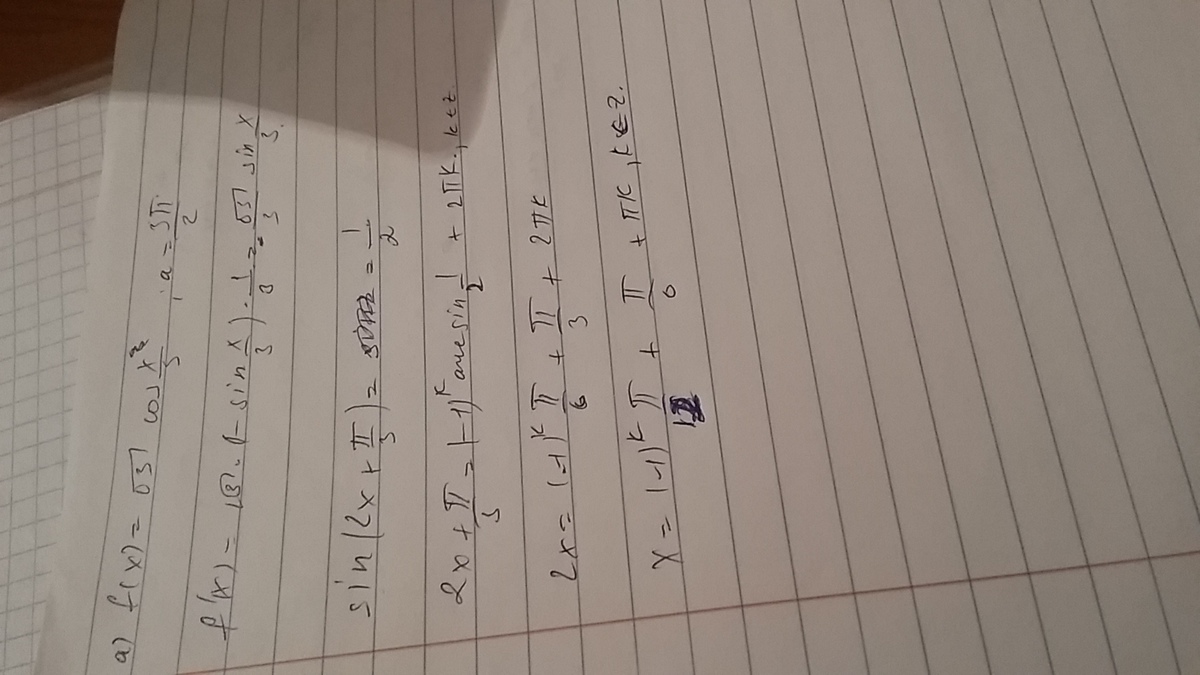 a) f(x) = √3 cos x/3, a = 3π/2
f'(x) = √3 · (- sin x/3) · 1/3 = √3/3 sin x/3.
sin(2x + π/3) = 1/2
2x + π/3 = (-1)^k arcsin 1/2 + 2πk, k∈z.
2x = (-1)^k π/6 + π/3 + 2πk
x = (-1)^k π/12 + π/6 + πk, k∈z.